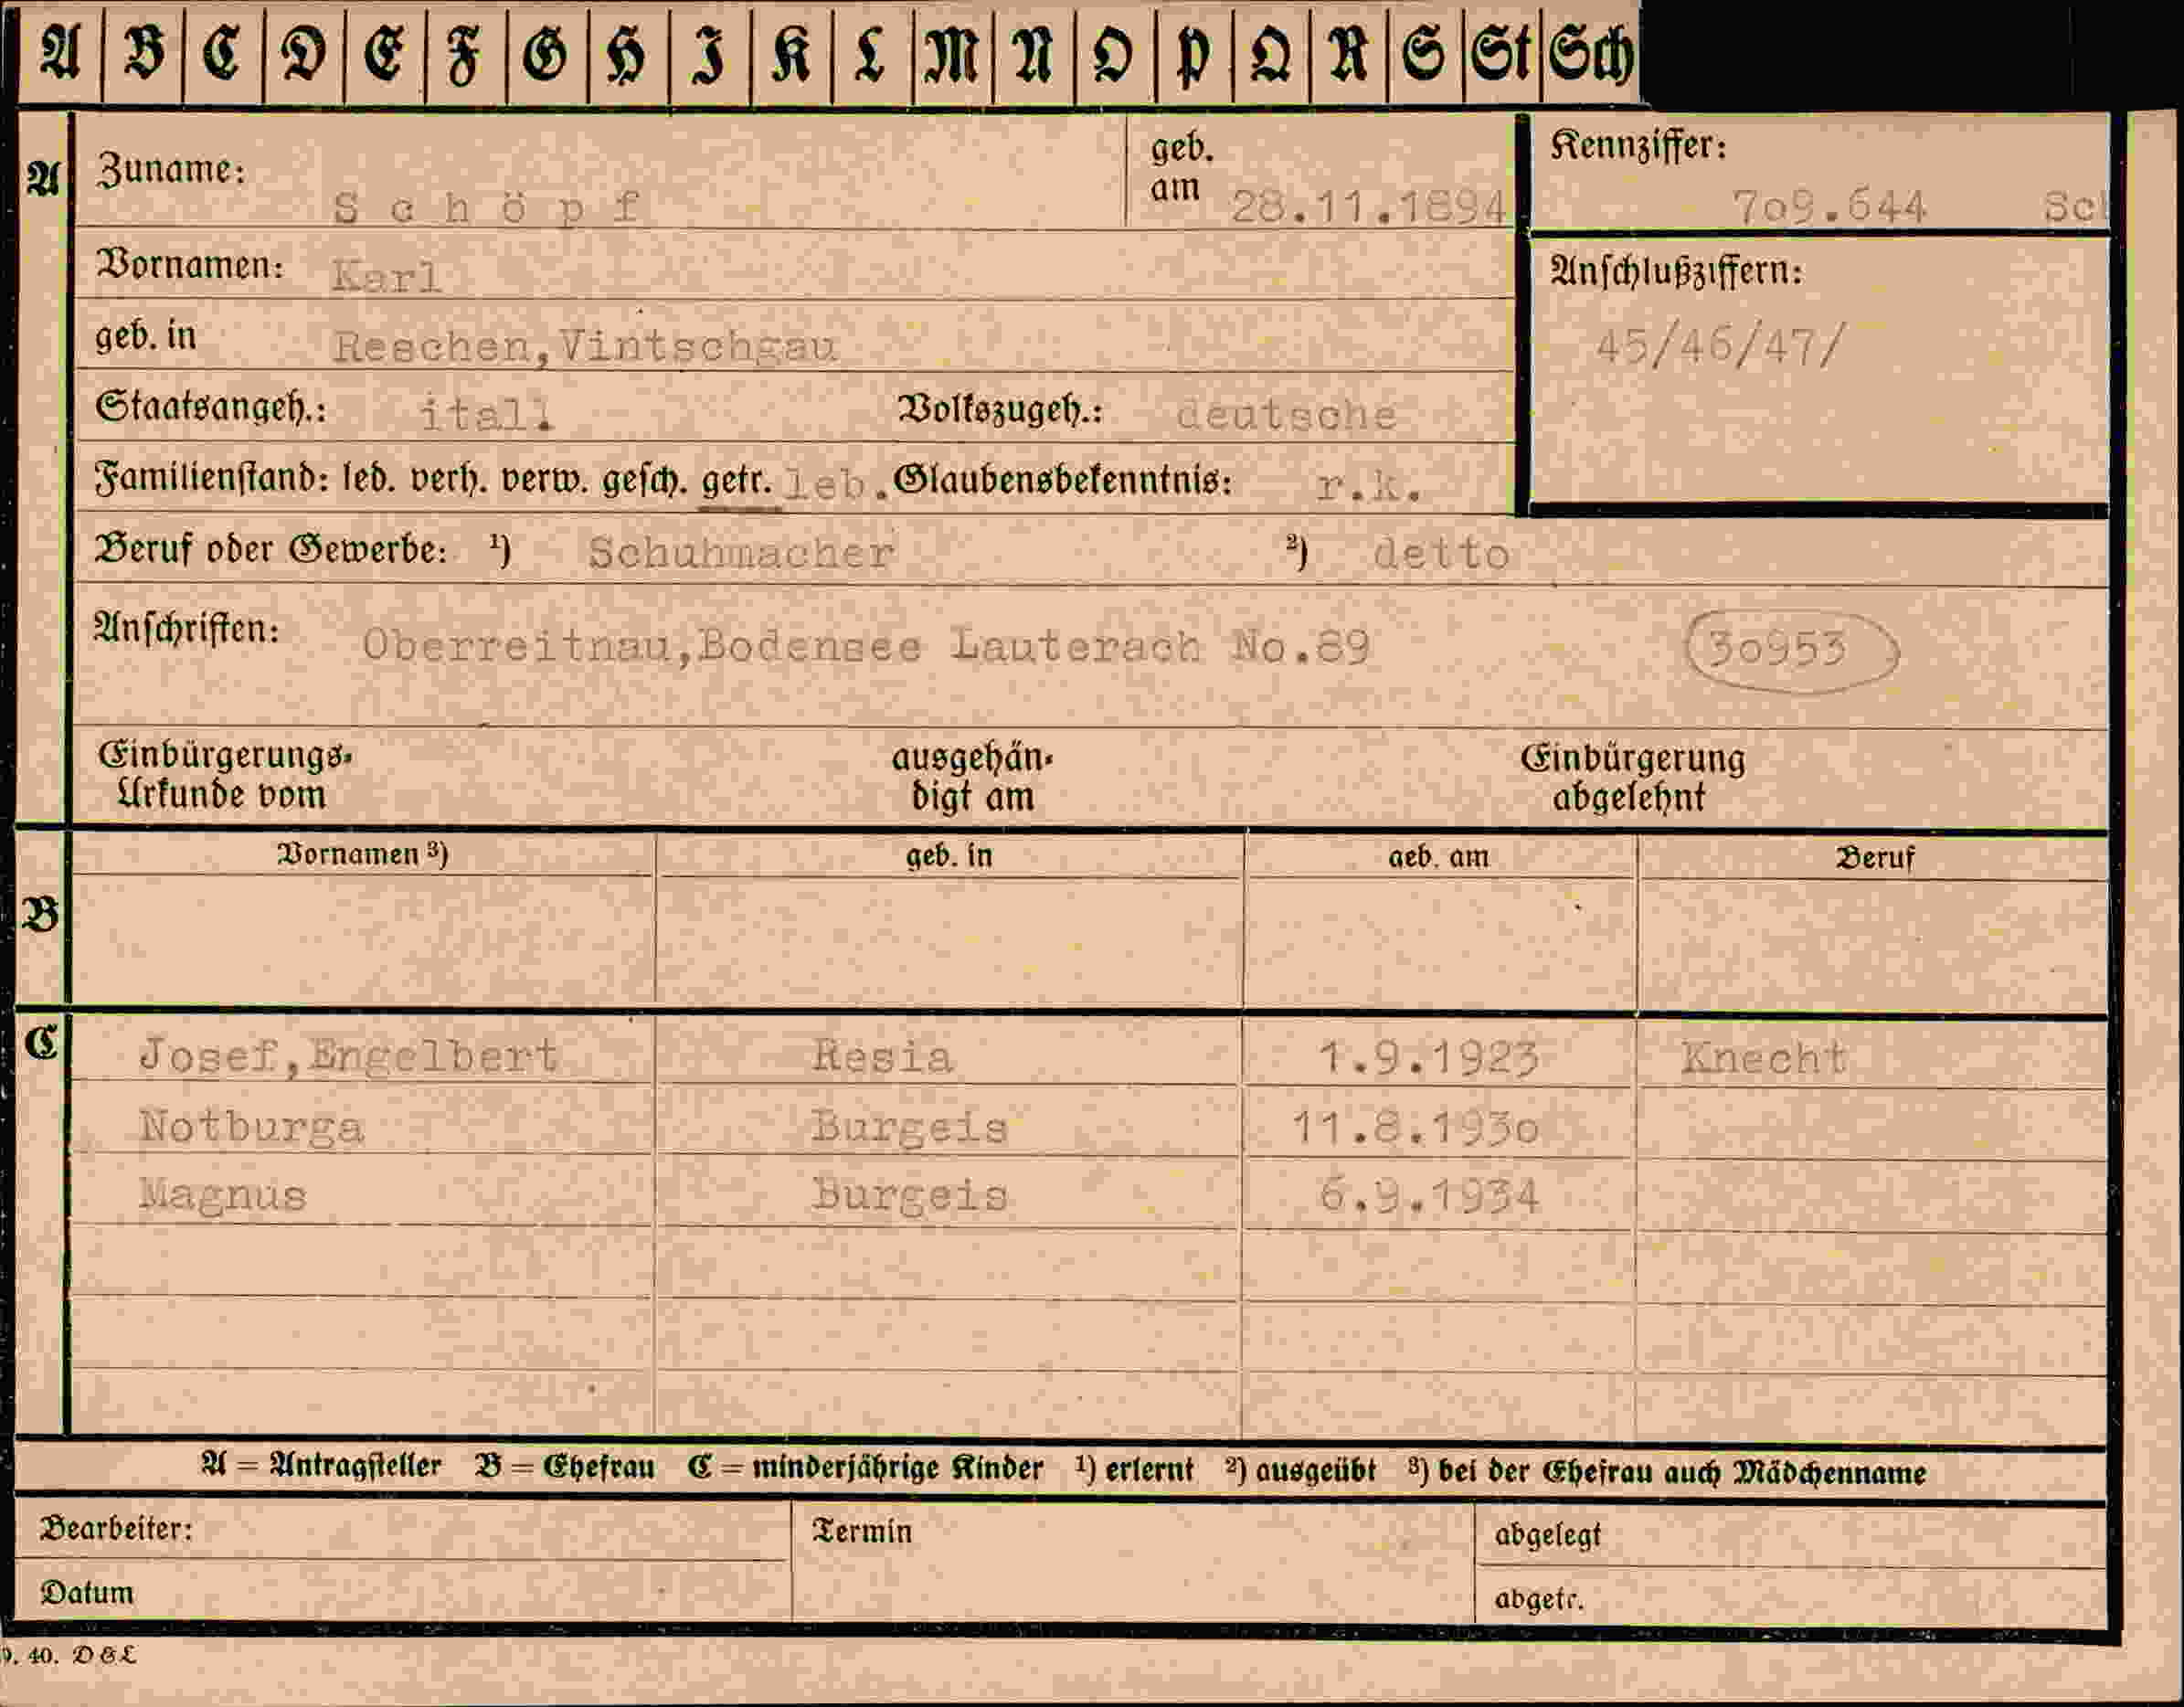 A B C D E F G H I K L M N O P Q R S St Sch
A Zuname: Schöpf geb. am 28.11.1894 Kennziffer: 709.644 Sch
Vornamen: Karl Anschlußziffern:
geb. in Reschen,Vintschgau 45/46/47/
Staatsangeh.: ital. Volkszugeh.: deutsche
Familienstand: led. verh. verw. gesch. getr. leb. Glaubensbekenntnis: r.k.
Beruf oder Gewerbe: ¹) Schuhmacher ²) detto
Anschriften: Oberreitnau,Bodensee Lauterach No.89 30953
Einbürgerungs-Urkunde vom ausgehändigt am Einbürgerung abgelehnt
Vornamen ³) geb. in geb. am Beruf
B
C Josef,Engelbert Resia 1.9.1923 Knecht
Notburga Burgeis 11.8.1930
Magnus Burgeis 6.9.1934
A = Antragsteller B = Ehefrau C = minderjährige Kinder ¹) erlernt ²) ausgeübt ³) bei der Ehefrau auch Mädchenname
Bearbeiter: Termin abgelegt
Datum abgetr.
9. 40. D & L